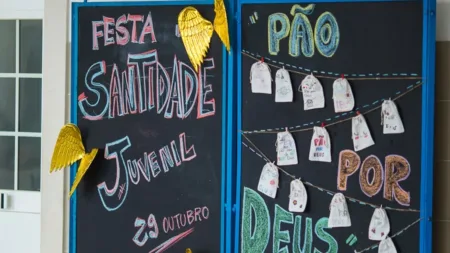 FESTA
SANTIDADE
JUVENIL
29 OUTUBRO
PÃO
POR
DEUS